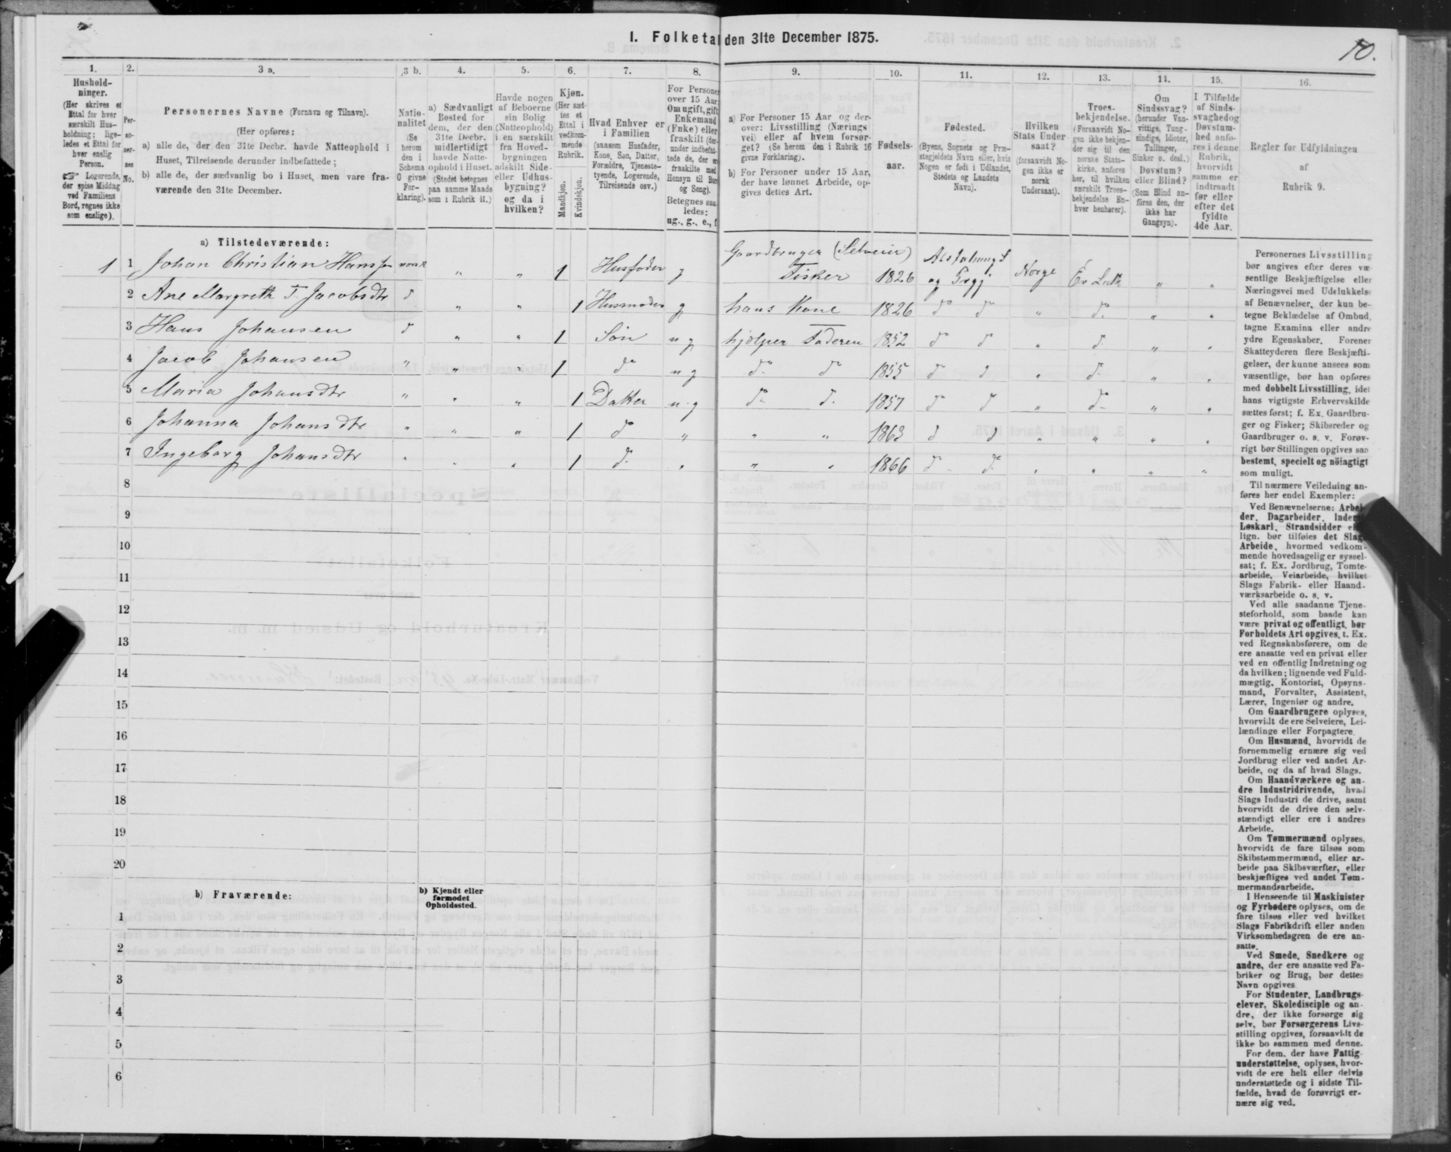 I. Folketal den 31te December 1875.
10.
1.
Hushold-
ninger.
(Her skrives et
Ettal for hver
særskilt Hus-
holdning; lige-
ledes et Ettal for
hver enslig
Person.
Logerende,
der spise Middag
ved Familiens
Bord, regnes ikke
som enslige).
2.
Per-
so-
ner-
nes
No.
3 a.
Personernes Navne (Fornavn og Tilnavn).
(Her opføres:
a) alle de, der den 31te Decbr. havde Natteophold i
Huset, Tilreisende derunder indbefattede;
b) alle de, der sædvanlig bo i Huset, men vare fra-
værende den 31te December.
3 b.
Natio-
nalitet
(Se
herom
den i
Schema
O givne
For-
klaring).
4.
a) Sædvanligt
Bosted for
dem, der den
31te Decbr.
midlertidigt
havde Natte-
ophold i Huset.
(Stedet betegnes
paa samme Maade
som i Rubrik 11.)
5.
Havde nogen
af Beboerne
sin Bolig
(Natteophold)
i en særskilt
fra Hoved-
bygningen
adskilt Side-
eller Udhus-
bygning?
og da i
hvilken?
6.
Kjøn.
(Her sæt-
tes et
Ettal i
vedkom-
mende
Rubrik.
Mandkjøn.
Kvindekjøn.
7.
Hvad Enhver er
i Familien
(saasom Husfader,
Kone, Søn, Datter,
Forældre, Tjeneste-
tyende, Logerende,
Tilreisende osv.)
8.
For Personer
over 15 Aar
Om ugift, gift
Enkemand
(Enke) eller
fraskilt
Betegnes saa-
ledes:
ug., g., e., f.
9.
a) For Personer 15 Aar og der-
over: Livsstilling (Nærings
vei) eller af hvem forsør-
get? (Se herom den i Rubrik 16
givne Forklaring).
b) For Personer under 15 Aar,
der have lønnet Arbeide, op-
gives dettes Art.
10.
Fødsels-
aar.
11.
Fødested.
(Byens, Sognets og Præ-
stegjeldets Navn eller, hvis
Nogen er født i Udlandet,
Stedets og Landets
Navn).
12.
Hvilken
Stats Under
saat?
(forsaavidt No-
gen ikke er
norsk
Undersaat).
13.
Troes-
bekjendelse.
(Forsaavidt No-
gen ikke bekjen-
der sig til den
norske Stats-
kirke, anføres
her, til hvilken
særskilt Troes-
bekjendelse En-
hver henhører).
14.
Om
Sindssvag?
(herunder Van-
vittige, Tung-
sindige, Idioter,
Tullinger,
Sinker o. desl.)
Døvstum?
eller Blind?
(Som Blind an-
føres den, der
ikke har
Gangsyn).
15.
I Tilfælde
af Sinds-
svaghed og
Døvstum-
hed anfø-
res i denne
Rubrik,
hvorvidt
samme er
indtraadt
før eller
efter det
fyldte
4de Aar.
16.
Regler for Udfyldningen
af
Rubrik 9.
a) Tilstedeværende:
1 1 Johan Christian Hanssen norsk „ „ 1 Husfader g Gaardbruger (Selveier) Fisker 1826 og Norge Ev. Luth „ „
2 Ane Margreth Jacobsdtr d „ „ 1 Husmoder g hans Kone 1826 d d „ d. „ „
3 Hans Johansen d „ „ 1 Søn u g hjelper Faderen 1852 d d „ d. „ „
4 Jacob Johansen „ „ „ 1 d u g d. d 1855 d d „ d. „ „
5 Maria Johansdtr „ „ „ 1 Datter u g d. d. 1857 d d „ d. „ „
6 Johanna Johansdtr „ „ „ 1 d „ „ „ 1863 d d „ „ „ „
7 Ingeborg Johansdtr „ „ „ 1 d. „ „ „ 1866 d. d. „ „ „ „
8
9
10
11
12
13
14
15
16
17
18
19
20
b) Fraværende:
b) Kjendt eller
formodet
Opholdssted.
1
2
3
4
5
6
Personernes Livsstilling
bør angives efter deres væ-
sentlige Beskjæftigelse eller
Næringsvei med Udelukkelse
af Benævnelser, der kun be-
tegne Beklædelse af Ombud,
tagne Examina eller andre
ydre Egenskaber. Forener
Skatteyderen flere Beskjæfti-
gelser, der kunne ansees som
væsentlige, bør han opføres
med dobbelt Livsstilling, idet
hans vigtigste Erhvervskilde
sættes først; f. Ex. Gaardbru-
ger og Fisker; Skibsreder og
Gaardbruger o. s. v. Forøv-
rigt bør Stillingen opgives saa
bestemt, specielt og nöiagtigt
som muligt.
Til nærmere Veiledning an-
føres her endel Exempler:
Ved Benævnelserne: Arbei-
der, Dagarbeider, Inderst,
Løskarl, Strandsidder
lign. bør tilføies det Slags
Arbeide, hvormed vedkom-
mende hovedsagelig er syssel-
sat; f. Ex. Jordbrug, Tomte-
arbeide, Veiarbeide, hvilket
Slags Fabrik- eller Haand-
værksarbeide o. s. v.
Ved alle saadanne Tjene-
steforhold, som baade kan
være privat og offentligt, bør
Forholdets Art opgives, t. Ex.
ved Regnskabsførere, om de
ere ansatte ved en privat eller
ved en offentlig Indretning og
da hvilken; lignende ved Fuld-
mægtig, Kontorist, Opsyns-
mand, Forvalter, Assistent,
Lærer, Ingeniør og andre.
Om Gaardbrugere oplyses,
hvorvidt de ere Selveiere, Lei-
lændinge eller Forpagtere.
Om Husmænd, hvorvidt de
fornemmelig ernære sig ved
Jordbrug eller ved andet Ar-
beide, og da af hvad Slags.
Om Haandværkere og an-
dre Industridrivende, hvad
Slags Industri de drive, samt
hvorvidt de drive den selv-
stændigt eller ere i andres
Arbeide.
Om Tømmermænd oplyses,
hvorvidt de fare tilsøs som
Skibstømmermænd, eller ar-
beide paa Skibsværfter, eller
beskjæftiges ved andet Tøm-
mermandsarbeide.
I Henseende til Maskinister
og Fyrbødere oplyses, om de
fare tilsøs eller ved hvilket
Slags Fabrikdrift eller anden
Virksomhedsgren de ere an-
satte.
Ved Smede, Snedkere og
andre, der ere ansatte ved Fa-
briker og Brug, bør dettes
Navn opgives.
For Studenter, Landbrugs-
elever, Skoledisciple og an-
dre, der ikke forsørge sig
selv, bør Forsørgerens Livs-
stilling opgives, forsaavidt de
ikke bo sammen med denne.
For dem, der have Fattig-
understøttelse, oplyses, hvor-
vidt de ere helt eller delvis
understøttede og i sidste Til-
fælde, hvad de forøvrigt er-
nære sig ved.